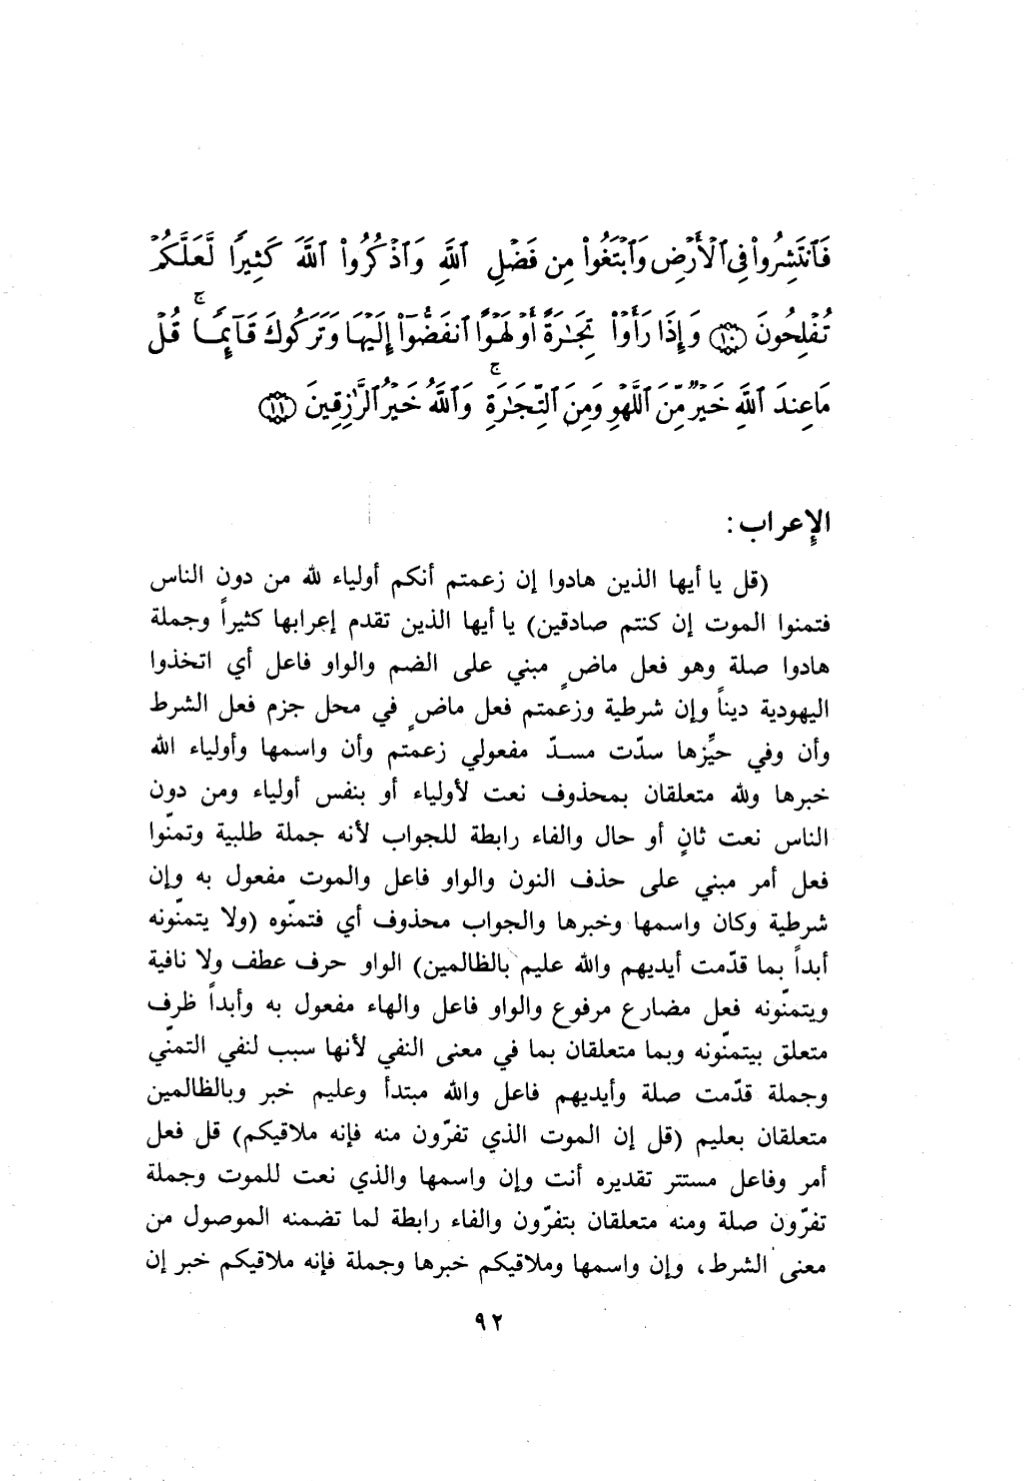 فَٱنتَشِرُوا۟ فِى ٱلْأَرْضِ وَٱبْتَغُوا۟ مِن فَضْلِ ٱللَّهِ وَٱذْكُرُوا۟ ٱللَّهَ كَثِيرًا لَّعَلَّكُمْ
تُفْلِحُونَ ﴿١٠﴾ وَإِذَا رَأَوْا۟ تِجَٰرَةً أَوْ لَهْوًا ٱنفَضُّوٓا۟ إِلَيْهَا وَتَرَكُوكَ قَآئِمًا ۚ قُلْ
مَا عِندَ ٱللَّهِ خَيْرٌ مِّنَ ٱللَّهْوِ وَمِنَ ٱلتِّجَٰرَةِ ۚ وَٱللَّهُ خَيْرُ ٱلرَّٰزِقِينَ ﴿١١﴾
الإعراب :
(قل يا أيها الذين هادوا إن زعمتم أنكم أولياء لله من دون الناس
فتمنوا الموت إن كنتم صادقين) يا أيها الذين تقدم إعرابها كثيراً وجملة
هادوا صلة وهو فعل ماضٍ مبني على الضم والواو فاعل أي اتخذوا
اليهودية ديناً وإن شرطية وزعمتم فعل ماضٍ في محل جزم فعل الشرط
وأن وفي حيِّزها سدّت مسدّ مفعولي زعمتم وأن واسمها وأولياء الله
خبرها ولله متعلقان بمحذوف نعت لأولياء أو بنفس أولياء ومن دون
الناس نعت ثانٍ أو حال والفاء رابطة للجواب لأنه جملة طلبية وتمنّوا
فعل أمر مبني على حذف النون والواو فاعل والموت مفعول به وإن
شرطية وكان واسمها وخبرها والجواب محذوف أي فتمنّوه (ولا يتمنّونه
أبداً بما قدّمت أيديهم والله عليم بالظالمين) الواو حرف عطف ولا نافية
ويتمنّونه فعل مضارع مرفوع والواو فاعل والهاء مفعول به وأبداً ظرف
متعلق بيتمنّونه وبما متعلقان بما في معنى النفي لأنها سبب لنفي التمنّي
وجملة قدّمت صلة وأيديهم فاعل والله مبتدأ وعليم خبر وبالظالمين
متعلقان بعليم (قل إن الموت الذي تفرّون منه فإنه ملاقيكم) قل فعل
أمر وفاعل مستتر تقديره أنت وإن واسمها والذي نعت للموت وجملة
تفرّون صلة ومنه متعلقان بتفرّون والفاء رابطة لما تضمنه الموصول من
معنى الشرط، وإن واسمها وملاقيكم خبرها وجملة فإنه ملاقيكم خبر إن
٩٢